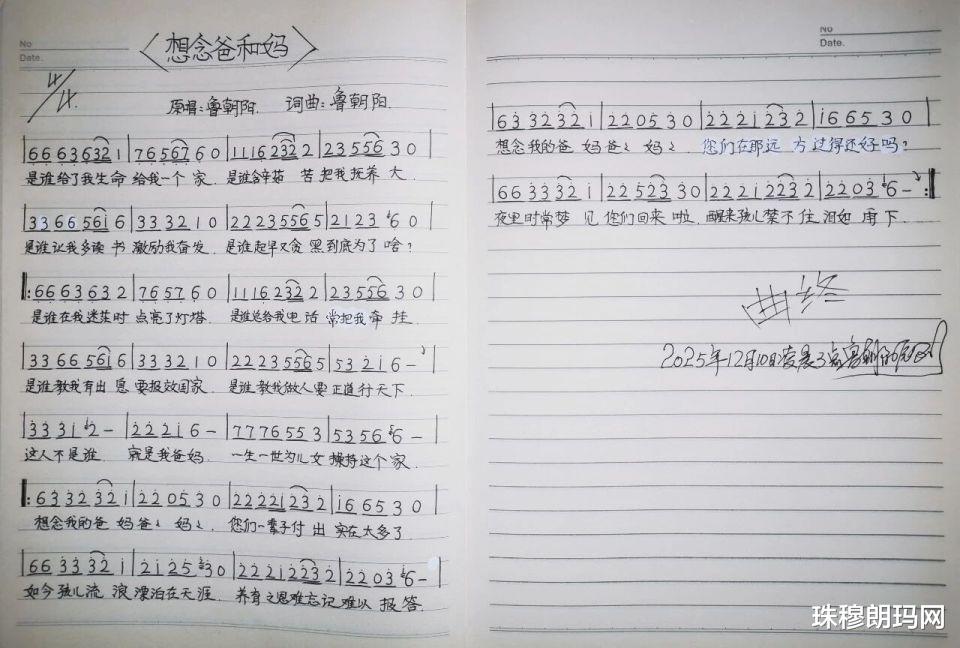 No
Date.
〈想念爸和妈〉
4/4
原唱:鲁朝阳. 词曲:鲁朝阳.
|66636321|7656760|1116232 2|2355630|
是谁给了我生命 给我一个 家. 是谁含辛茹 苦 把我抚养 大
|33665616|333210|22235565|2123 60|
是谁让我多读 书 激励我奋发. 是谁起早又贪 黑到底为了 啥?
|:66636322|765760|1116232 2|2355630|
是谁在我迷茫时 点亮了灯塔. 是谁总给我电 话 常把我牵 挂.
|33665616|333210|22235565|53216-|
是谁教我有出 息 要报效国家. 是谁教我做人要 正道行天下
|3312-|22216-|7776553|53566-|
这人不是谁. 就是我爸妈. 一生一世为儿女 操持这个家.
|:6332321|220530|22221232|166530|
想念我的爸 妈爸〻 妈〻. 您们一辈子付 出 实在太多了
|6633321|212530|22212232|22036-|
如今孩儿流 浪 漂泊在天涯. 养育之恩难忘记 难以 报答.
No
Date.
|6332321|220530|22212232|166530|
想念我的爸 妈爸〻 妈〻. 您们在那远 方过得还好吗?
|6633321|2252330|22212232|22036-:|
夜里时常梦 见 您们回来 啦. 醒来孩儿禁不 住 泪如 雨 下.
曲终
2025年12月10日凌晨3点鲁朝阳
珠穆朗玛网